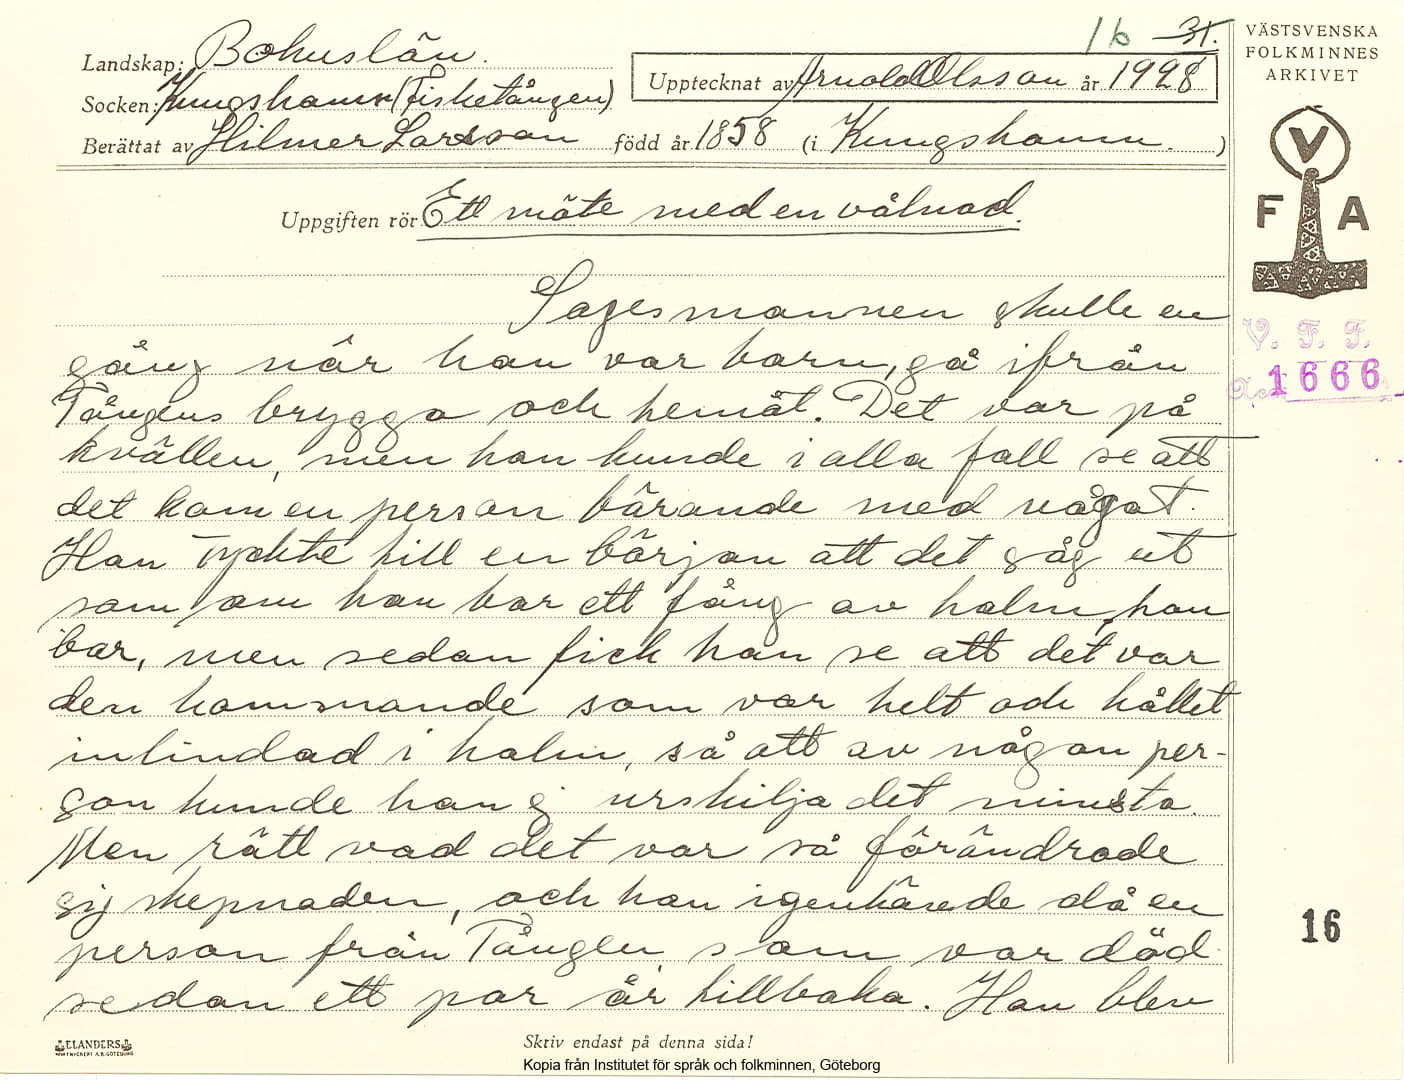 16 31.
Landskap: Bohuslän.
Socken: Kungshamn (Fisketången)
Berättat av Hilmer Larsson född år 1858 (i Kungshamn. )
Upptecknat av Arnold Olsson år 1928
VÄSTSVENSKA
FOLKMINNES
ARKIVET
V
F A
V. F. F.
1666
Uppgiften rör Ett möte med en vålnad.
Sagesmannen skulle en
gång när han var barn, gå ifrån
Tångens brygga och hemåt. Det var på
kvällen, men han kunde i alla fall se att
det kom en person bärande med något.
Han tyckte till en början att det såg ut
som om han bar ett fång av halm, han
bar, men sedan fick han se att det var
den kommande som var helt och hållet
inlindad i halm, så att av någon per-
son kunde han ej urskilja det minsta.
Men rätt vad det var så förändrade
sig skepnaden, och han igenkände då en
person från Tången, som var död
sedan ett par år tillbaka. Han blev
16
ELANDERS
Skriv endast på denna sida!
Kopia från Institutet för språk och folkminnen, Göteborg